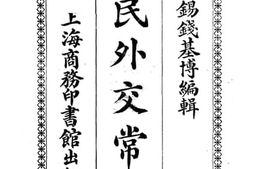 錫錢基博編輯
民外交常
上海商務印書館出